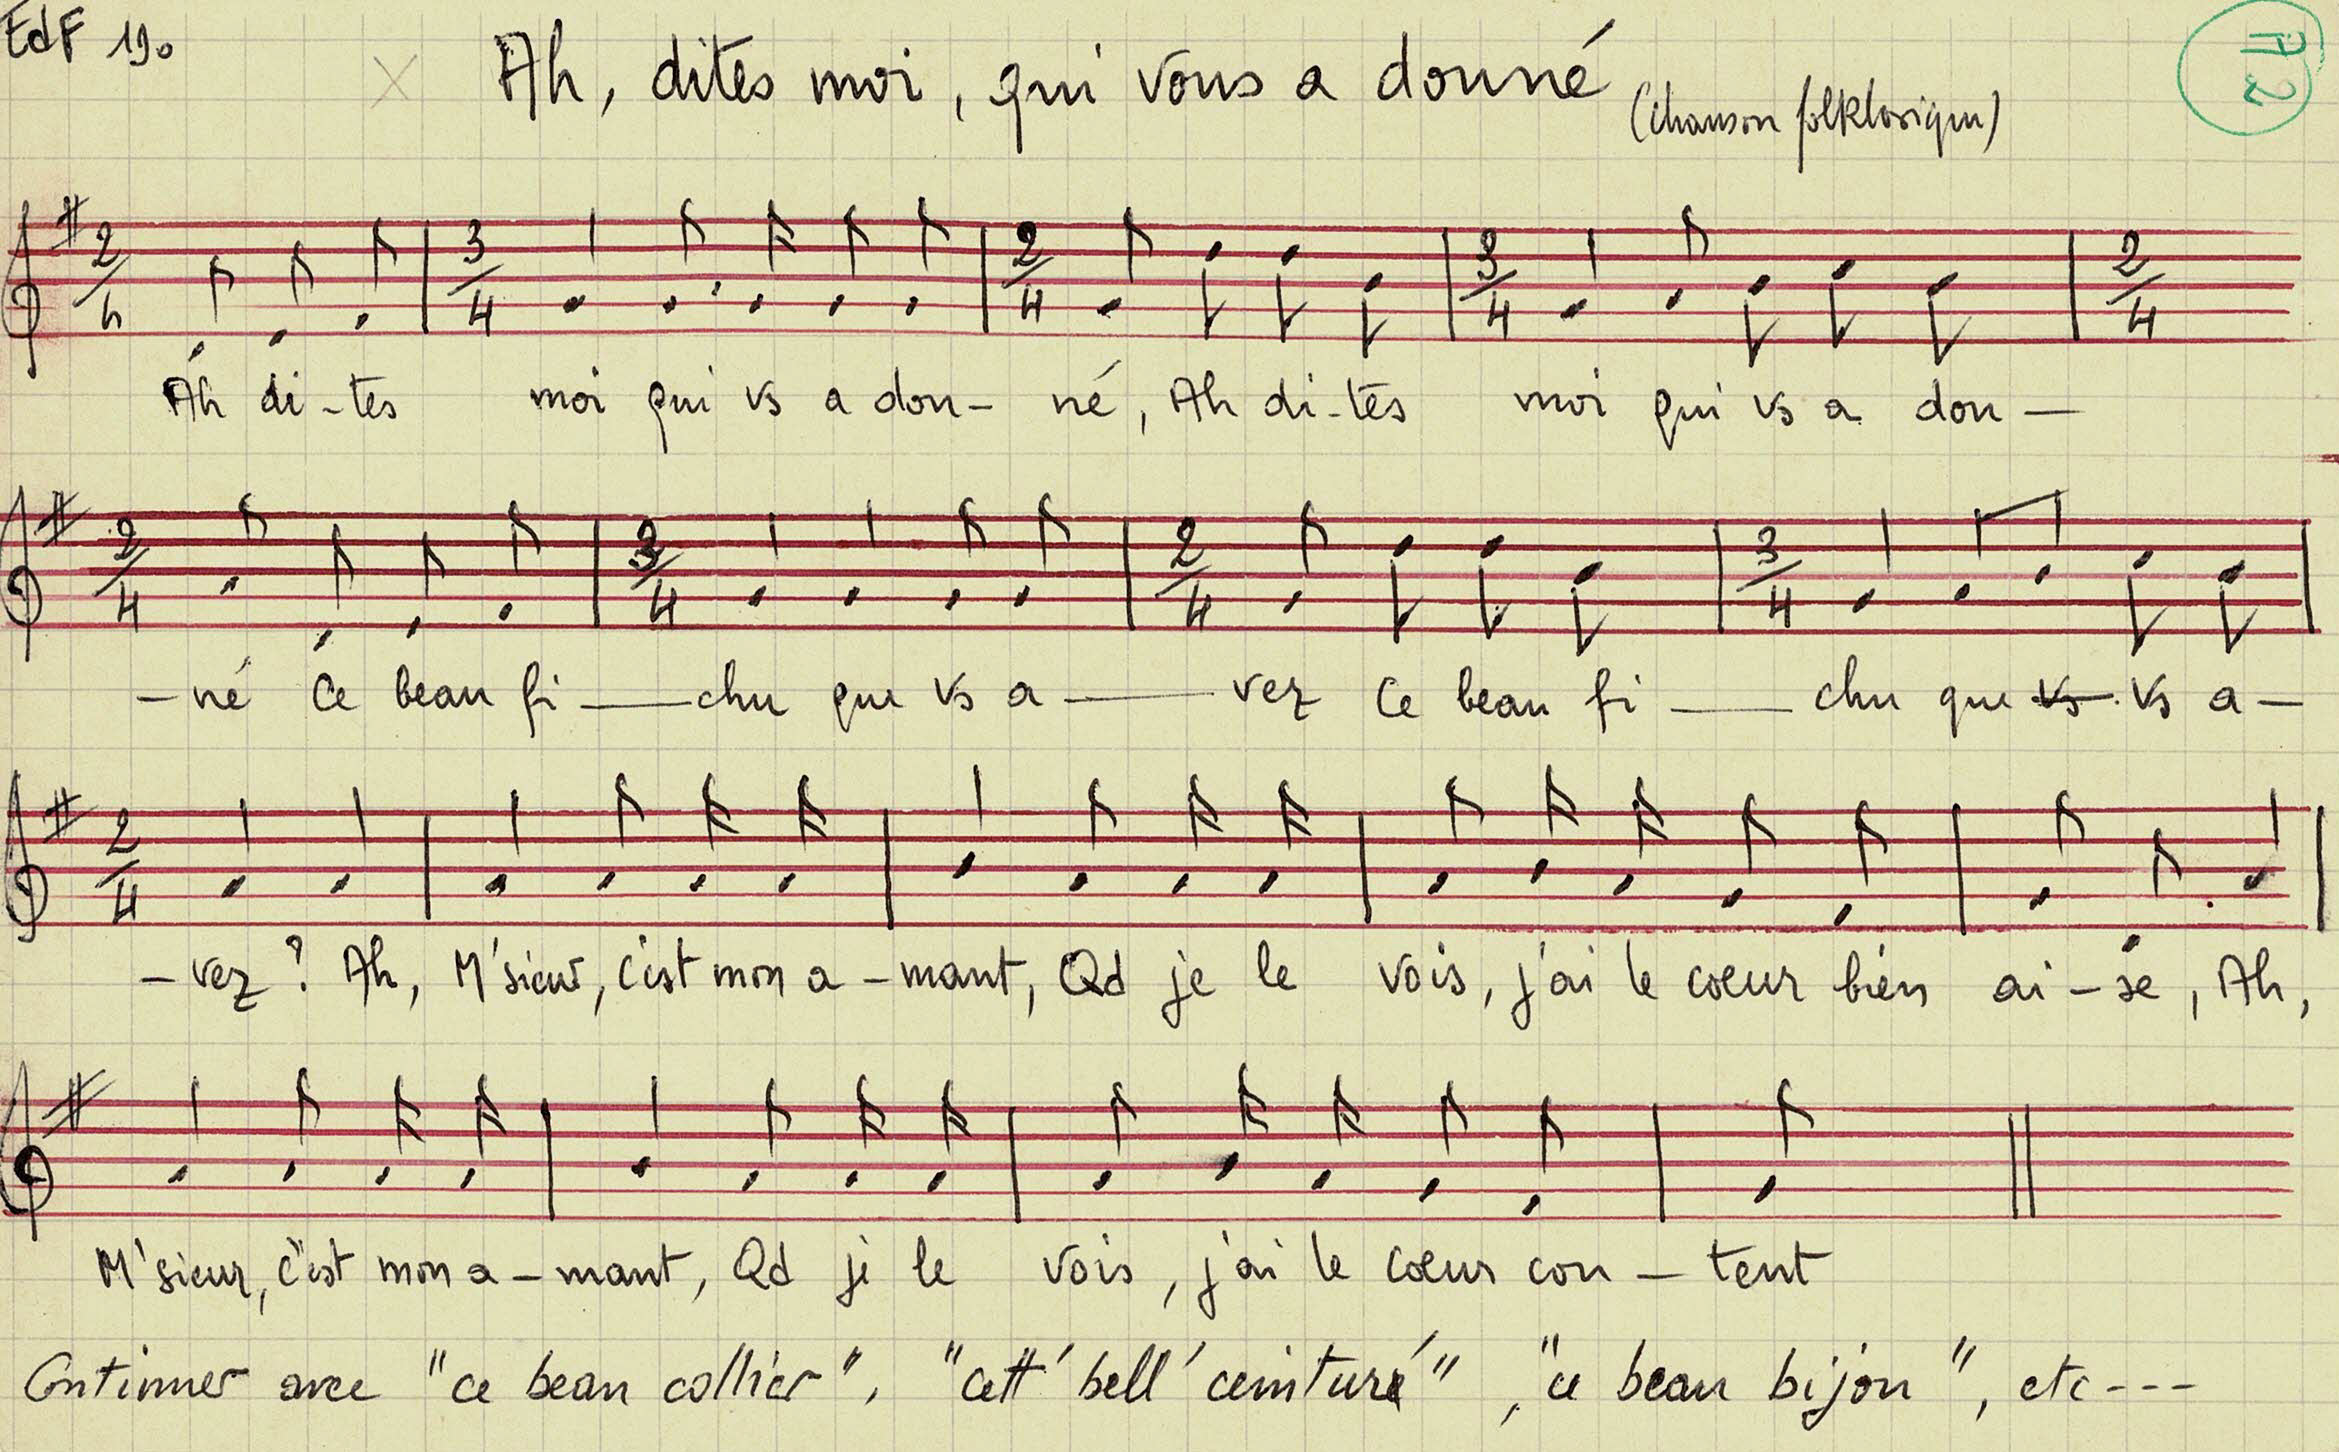 EdF 190
Ah, dites moi, qui vous a donné (chanson folklorique)
2/4 3/4 2/4 3/4 2/4
Ah di-tes moi qui vs a don- né, Ah di-tes moi qui vs a don—
2/4 3/4 2/4 3/4
-né Ce beau fi—chu que vs a—vez Ce beau fi—chu que vs vs a-
2/4
-vez ? Ah, M'sieur, c'est mon a-mant, Qd je le vois, j'ai le cœur bien ai-se, Ah,
M'sieur, c'est mon a-mant, Qd je le vois, j'ai le cœur con-tent
Continuer avec "ce beau collier", "cett' bell' ceinture", "ce beau bijou", etc---